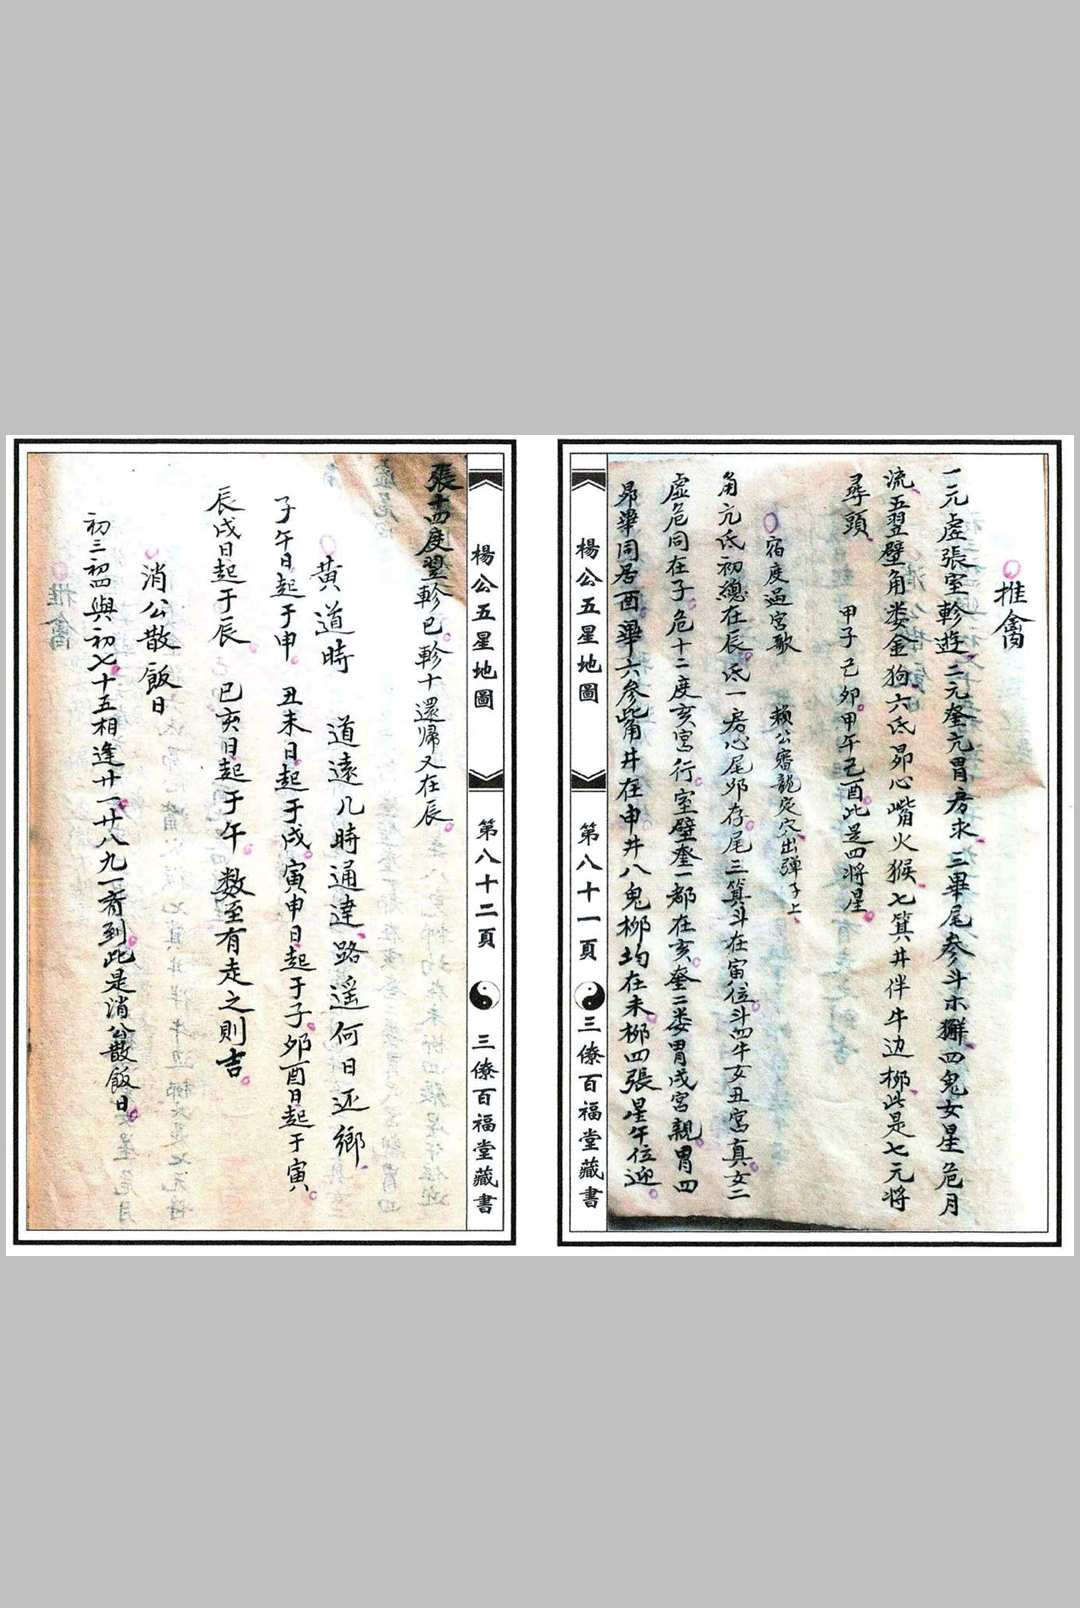 推禽
一元虛張室軫遊二元奎亢胃房求三畢尾參斗木獬四鬼女星危月
流五翌壁角娄金狗六氐昴心嘴火猴七箕井伴牛边柳此是七元將
尋頭　甲子己卯甲午己酉此是四將星
宿度過宮歌　赖公審龍定穴出弹子上
角亢氐初總在辰氐一房心尾夘存尾三箕斗在寅位斗四牛女丑宮真女二
虛危同在子危十二度亥宮行室壁奎一都在亥奎二娄胃戌宮親胃四
昴畢同居酉畢六參觜井在申井八鬼柳均在未柳四張星午位迎
楊公五星地圖　第八十一頁　三僚百福堂藏書
楊公五星地圖　第八十二頁　三僚百福堂藏書
張十四度翌軫巳軫十還歸又在辰
黄道時　道遠几時通達路遥何日还鄉
子午日起于申　丑未日起于戌寅申日起于子夘酉日起于寅
辰戌日起于辰　巳亥日起于午数至有走之則吉
消公散飯日
初三初四與初七十五相逢廿一廿八九一看到此是消公散飯日